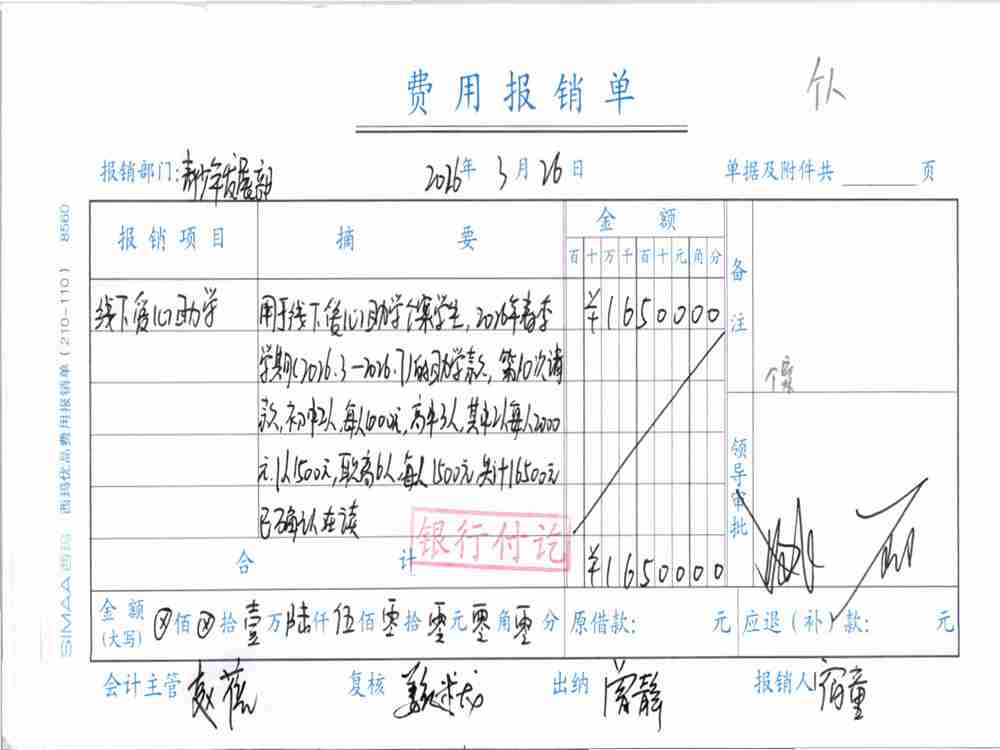 费用报销单
报销部门:青少年发展部 2026年 3月26日 单据及附件共 页
报销项目 摘 要 金 额 备注
百十万千百十元角分
线下爱心助学 用于线下爱心助学个案学生,2026年春季 ¥1650000
学期(2026.3-2026.7)的助学款,第10次请
款,初中2人,每人1000元,高中3人,其中2人每人2000
元.1人1500元,职高6人,每人1500元,共计16500元
已确认在读
领导审批
银行付讫
合 计 ¥1650000
金额(大写) ⊗佰⊗拾壹万陆仟伍佰零拾零元零角零分 原借款: 元 应退(补)款: 元
会计主管 复核 出纳 曾静 报销人
SIMAA西玛 西玛优品费用报销单(210-110) 8560